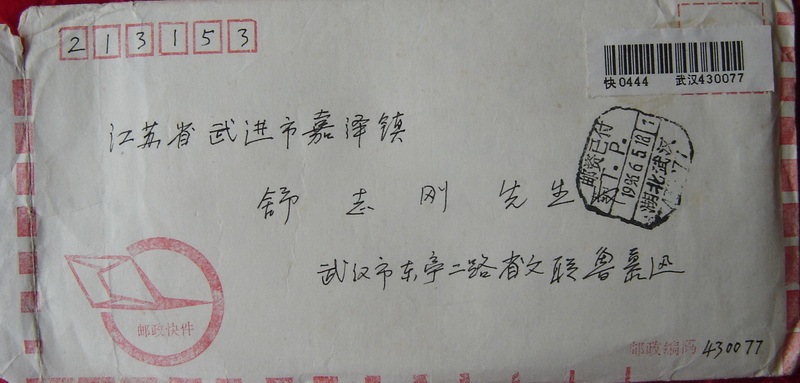 213153
快0444 武汉430077
江苏省武进市嘉泽镇
邮资已付
T.P.
1996.6.5.18
湖北武汉
舒志刚先生
武汉市东亭二路省文联鲁嘉迅
邮政快件
邮政编码 430077